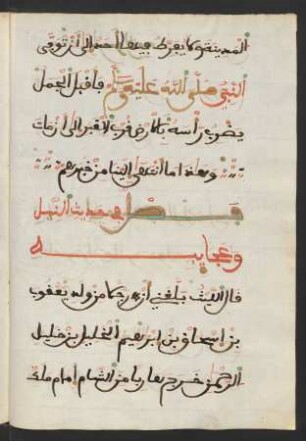 المدينة وكا يفرط فيه احد الى ان توفى
النبي صلى الله عليه وسلم فاقبل الجمل
يضرب راسه بالارض فرب لا قبر الى ان مات
وهذا ما انتهى الينا من خبرهم
فصل في حديث النيل
وعجايبه
قال الليث بلغني ان رجلا من ولد يعقوب
بن اسحاق بن ابرهيم الخليل بن خليل
الرحمن خرج هاربا من الشام امام ملك